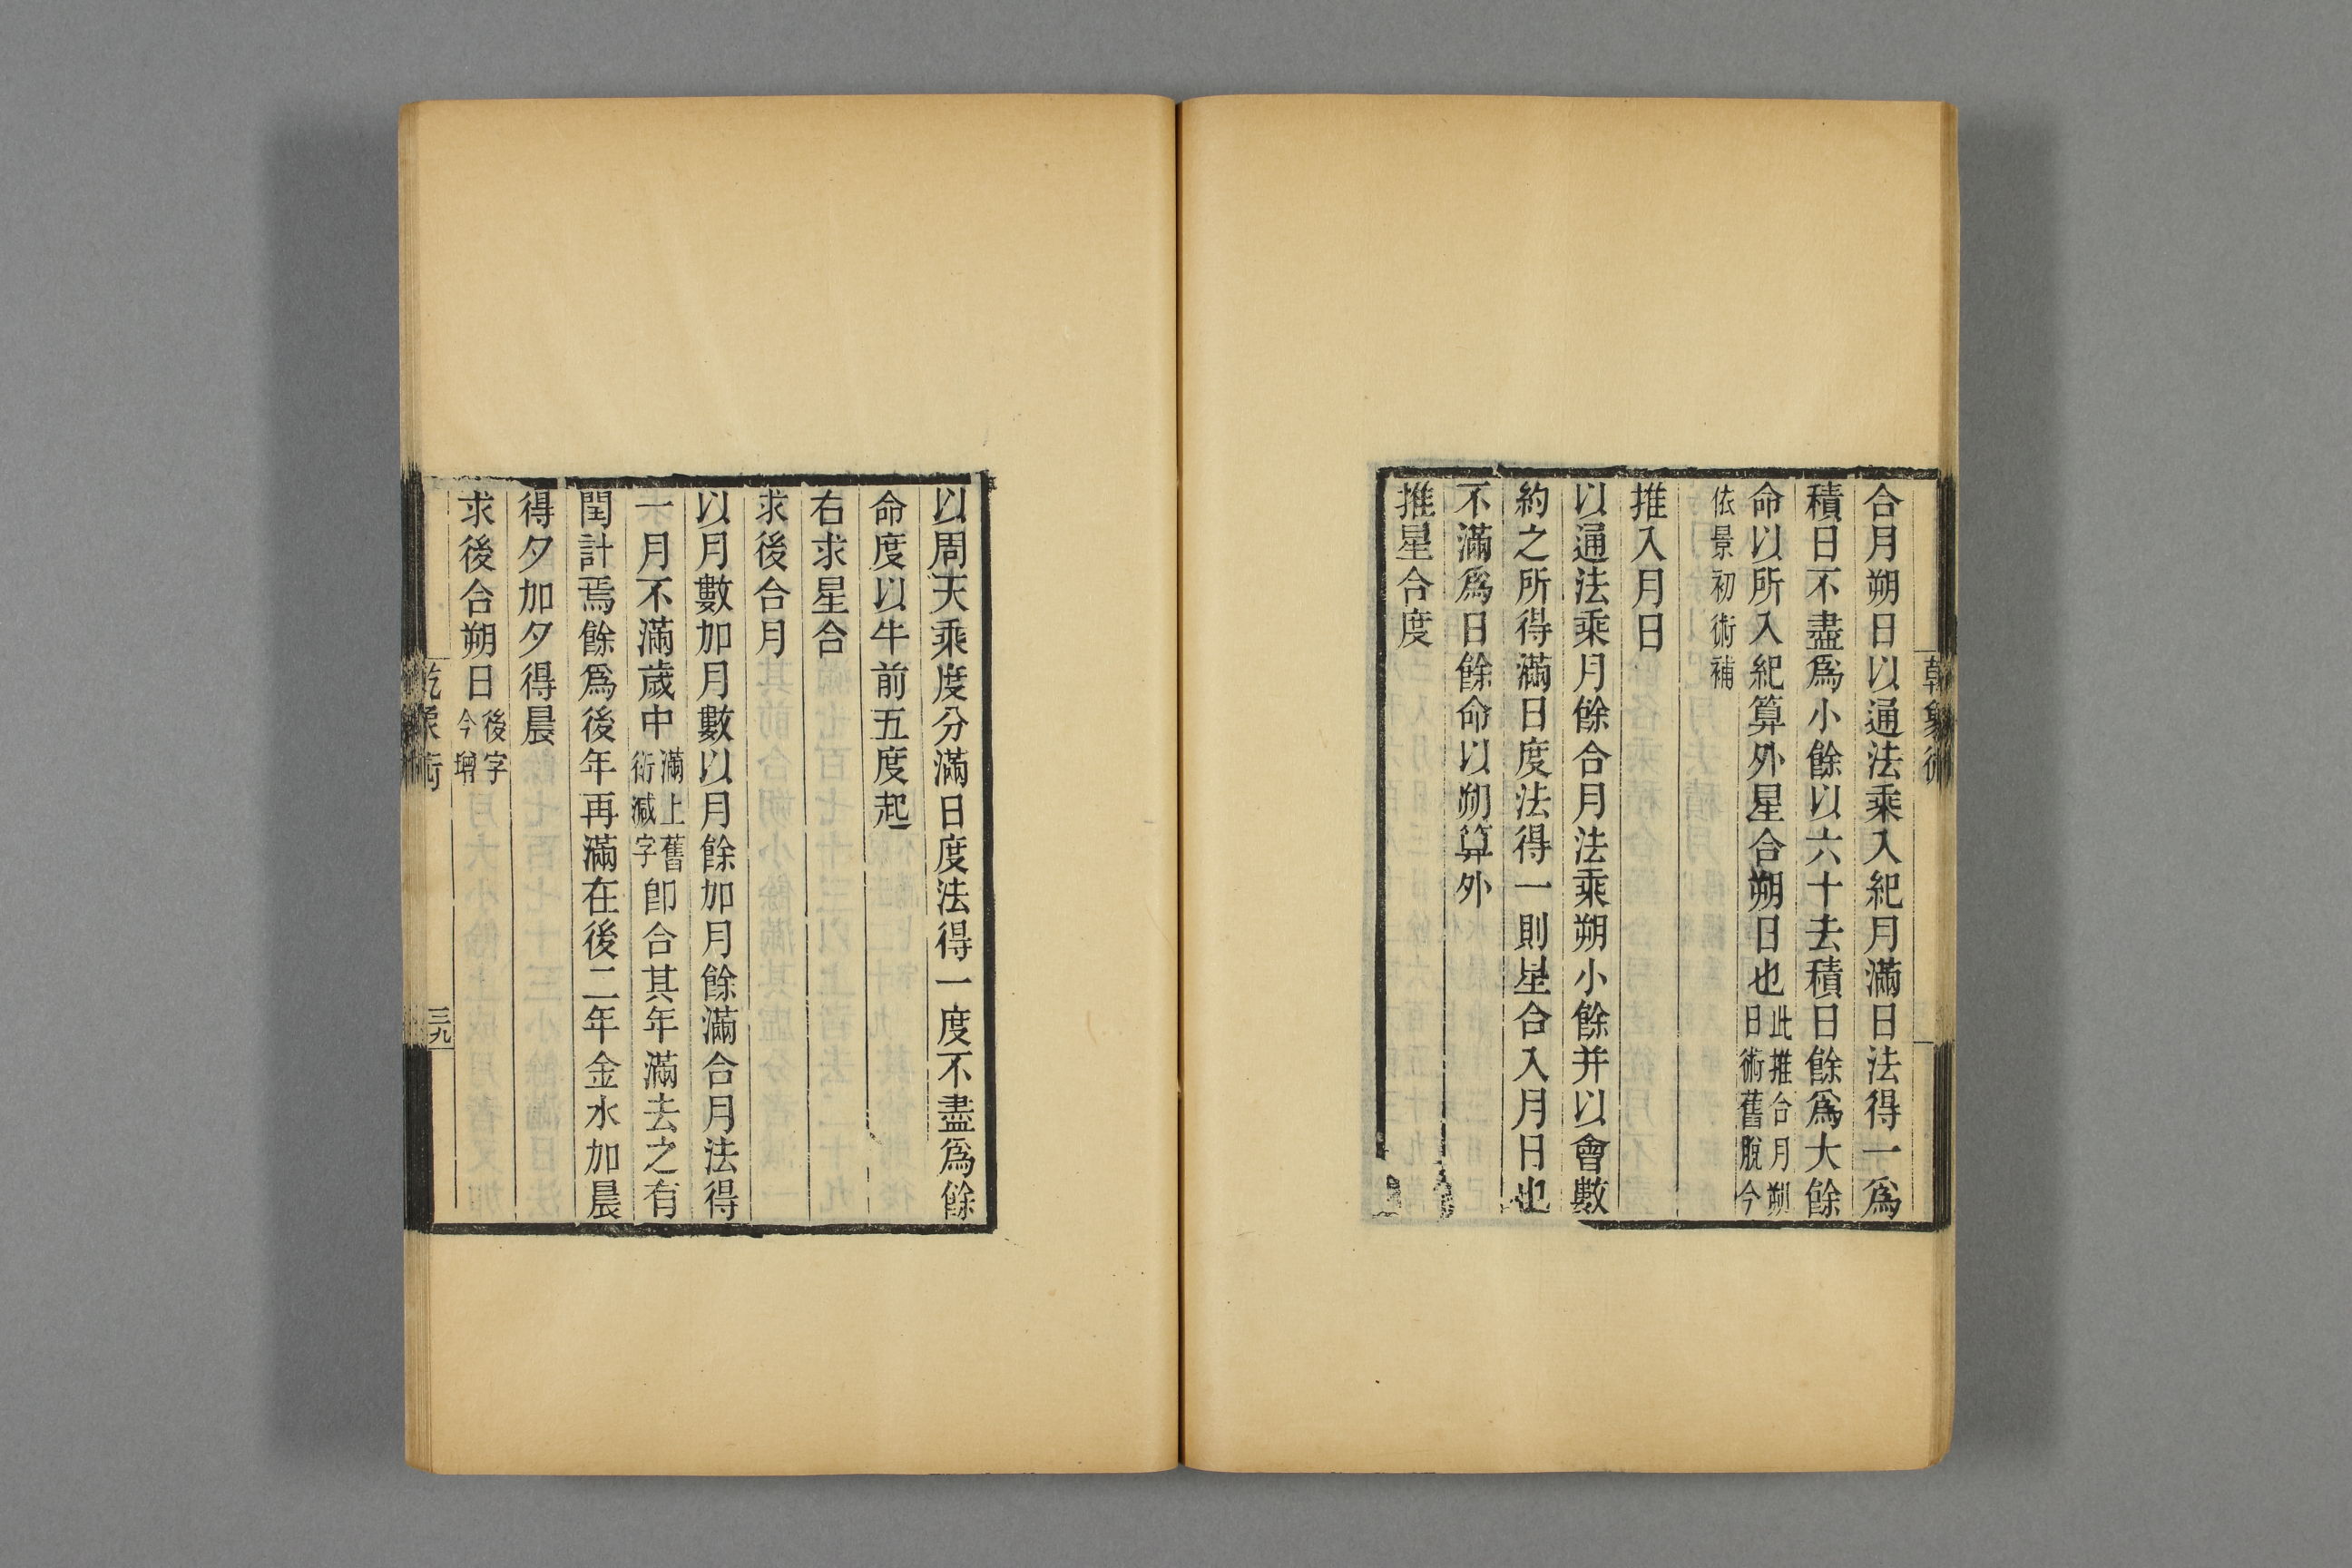 合月朔日以通法乘入紀月滿日法得一爲
積日不盡爲小餘以六十去積日餘爲大餘
命以所入紀算外星合朔日也此推合月朔日術舊脫今
依景初術補
推入月日
以通法乘月餘合月法乘朔小餘并以會數
約之所得滿日度法得一則星合入月日也
不滿爲日餘命以朔算外
推星合度
以周天乘度分滿日度法得一度不盡爲餘
命度以牛前五度起
右求星合
求後合月
以月數加月數以月餘加月餘滿合月法得
一月不滿歲中滿上舊衍減字卽合其年滿去之有
閏計焉餘爲後年再滿在後二年金水加晨
得夕加夕得晨
求後合朔日後字今增
乾象術
三九